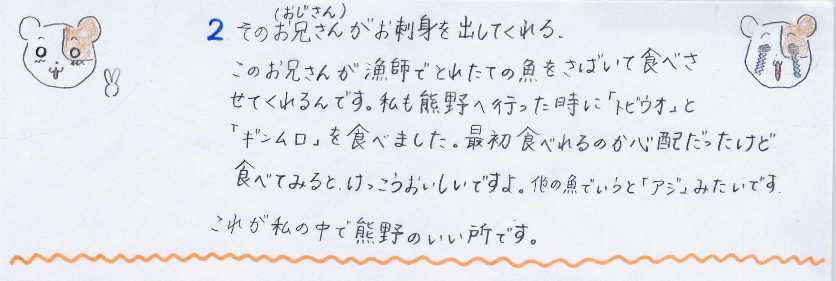 (おじさん)
2 そのお兄さんがお刺身を出してくれる.
このお兄さんが漁師でとれたての魚をさばいて食べさ
せてくれるんです。私も熊野へ行った時に「トビウオ」と
「ギンムロ」を食べました。最初食べれるのか心配だったけど
食べてみると、けっこうおいしいですよ。他の魚でいうと「アジ」みたいです.
これが私の中で熊野のいい所です。